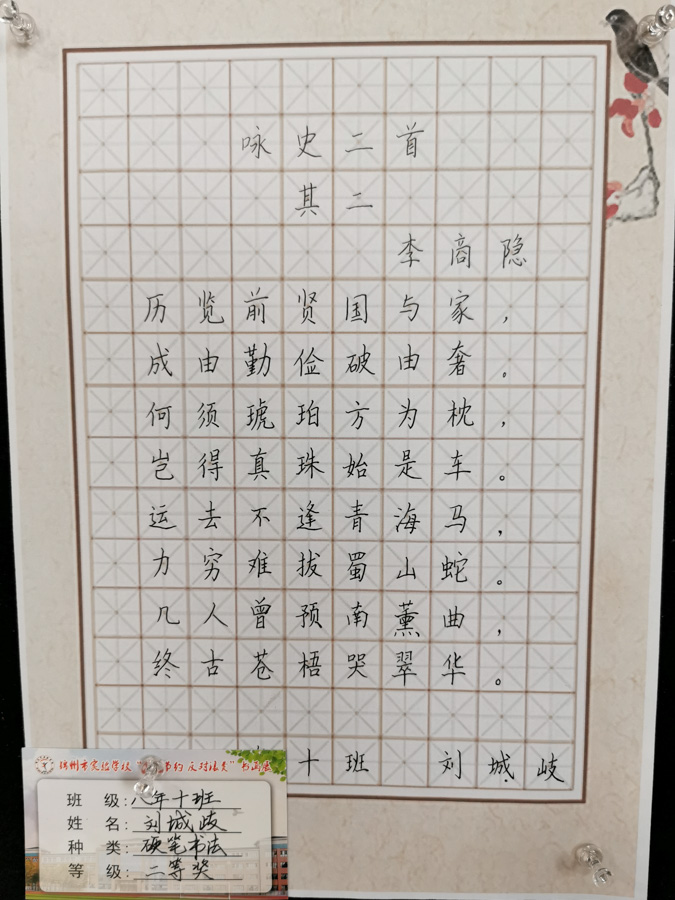 咏史二首
其二
李商隐
历览前贤国与家，
成由勤俭破由奢。
何须琥珀方为枕，
岂得真珠始是车。
运去不逢青海马，
力穷难拔蜀山蛇。
几人曾预南薰曲，
终古苍梧哭翠华。
十班 刘城岐
市实验学校 节约 反对浪费”书画展
班级：八年十班
姓名：刘城岐
种类：硬笔书法
等级：二等奖